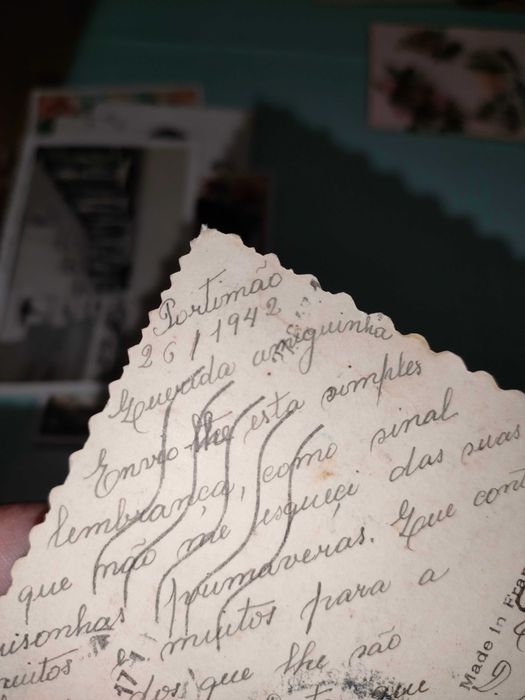 Portimão
26/1942
Querida amiguinha
Envio-lhe esta simples
lembrança, como sinal
que não me esqueçi das suas
risonhas primaveras. Que
muitos e muitos para a
dos que lhe são
que
Made in Fran